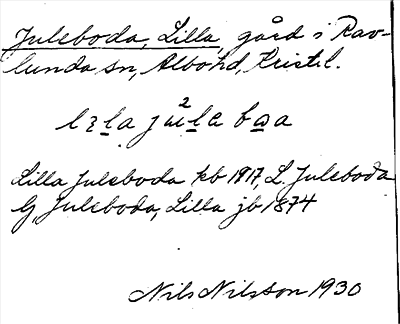 Juleboda, Lilla, gård i Rav-
lunda sn, Albo hd, Kristil.
Lilla Juleboda kb 1917, L. Juleboda
G, Juleboda, Lilla jb 1874
Nils Nilsson 1930